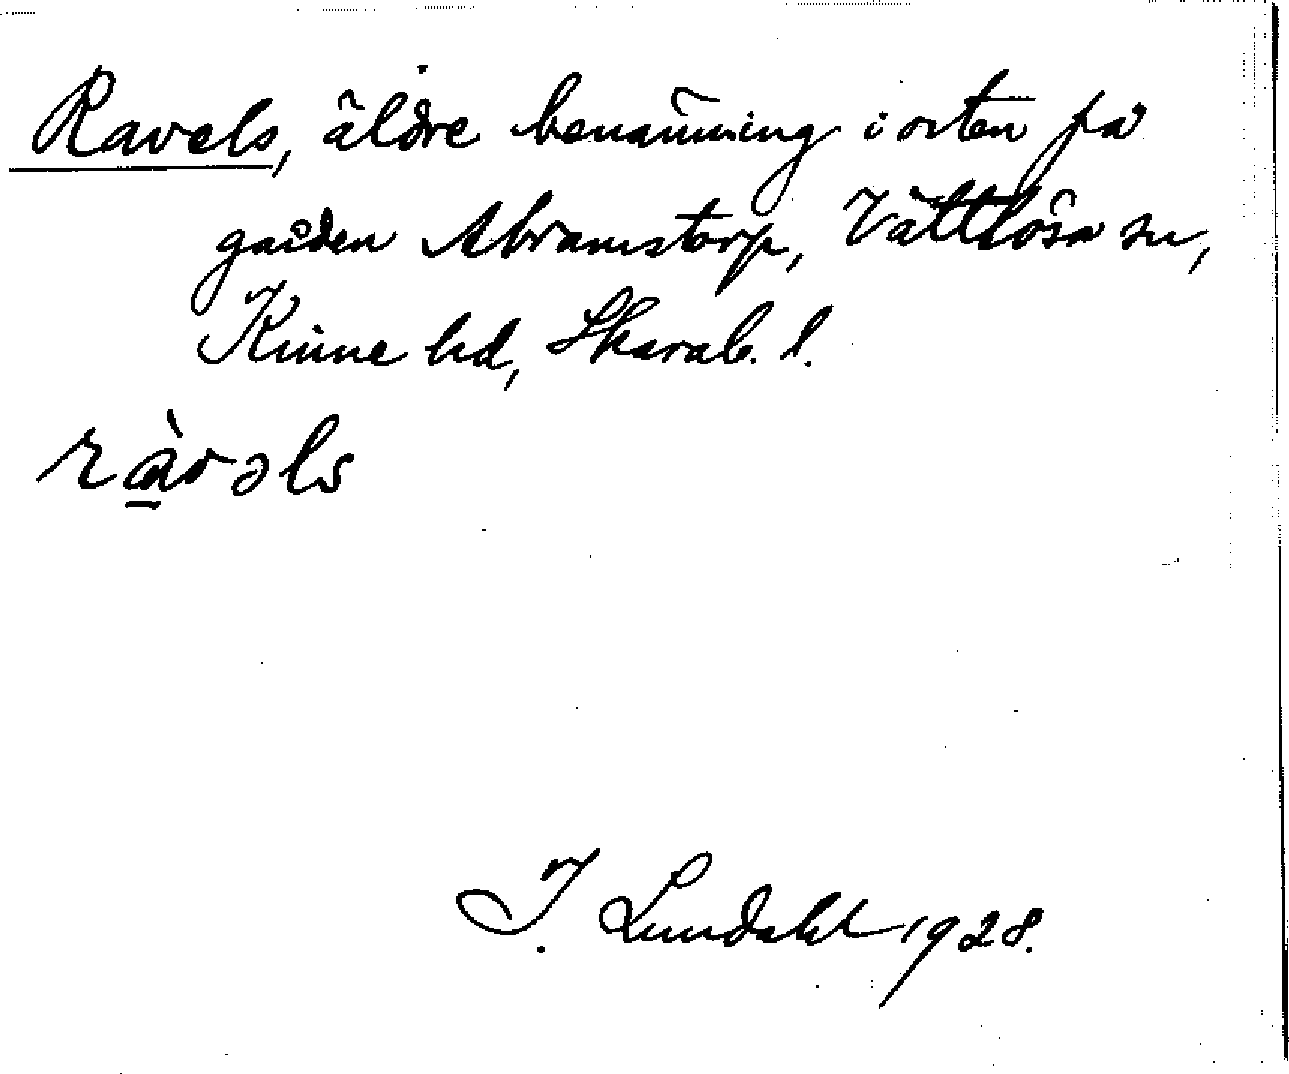 Ravels, äldre benämning i orten på
gården Abramstorp, Vättlösa sn,
Kinne hd, Skarab. l.
ràvəls
I. Lundahl 1928.